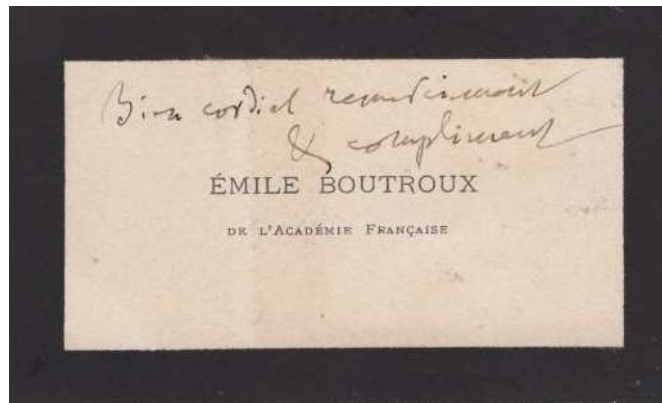 Bien cordial remerciement
& compliment
ÉMILE BOUTROUX
DE L'ACADÉMIE FRANÇAISE